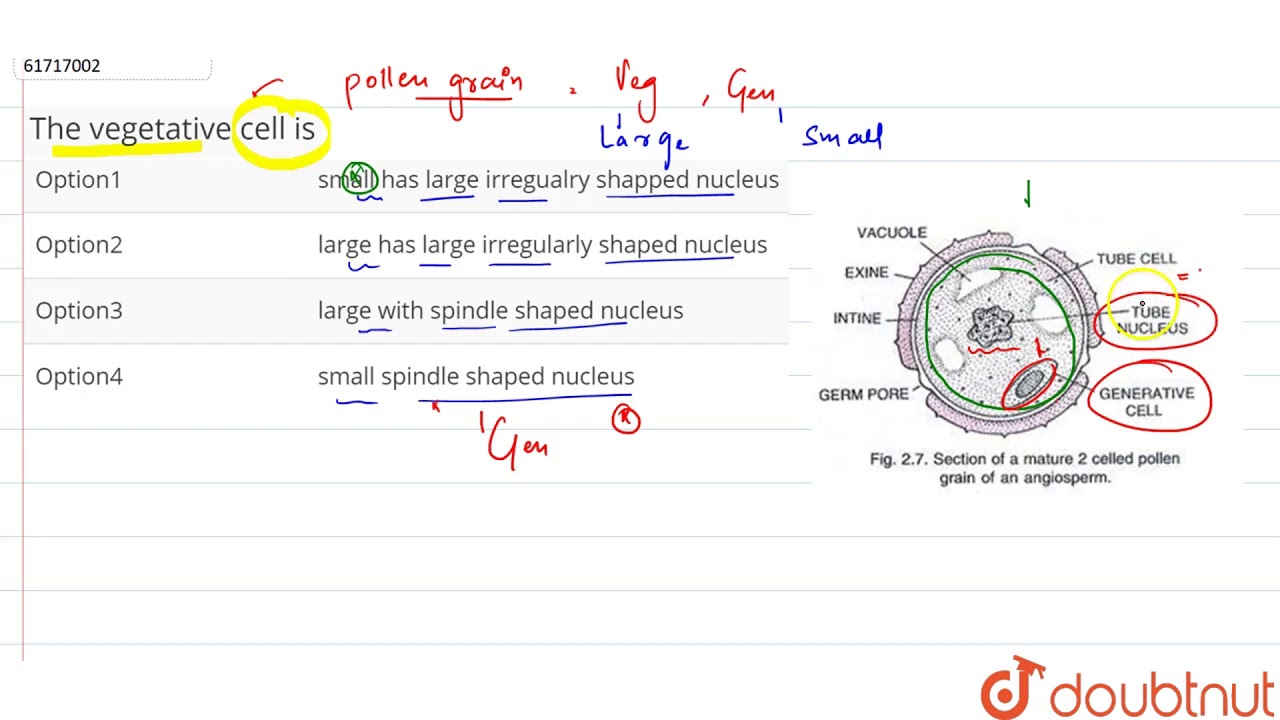 61717002
pollen grain = Veg , Gen
Large small
The vegetative cell is
Option1 small has large irregualry shapped nucleus
Option2 large has large irregularly shaped nucleus
Option3 large with spindle shaped nucleus
Option4 small spindle shaped nucleus
Gen
VACUOLE
EXINE
INTINE
GERM PORE
TUBE CELL
TUBE
NUCLEUS
GENERATIVE
CELL
Fig. 2.7. Section of a mature 2 celled pollen
grain of an angiosperm.
doubtnut